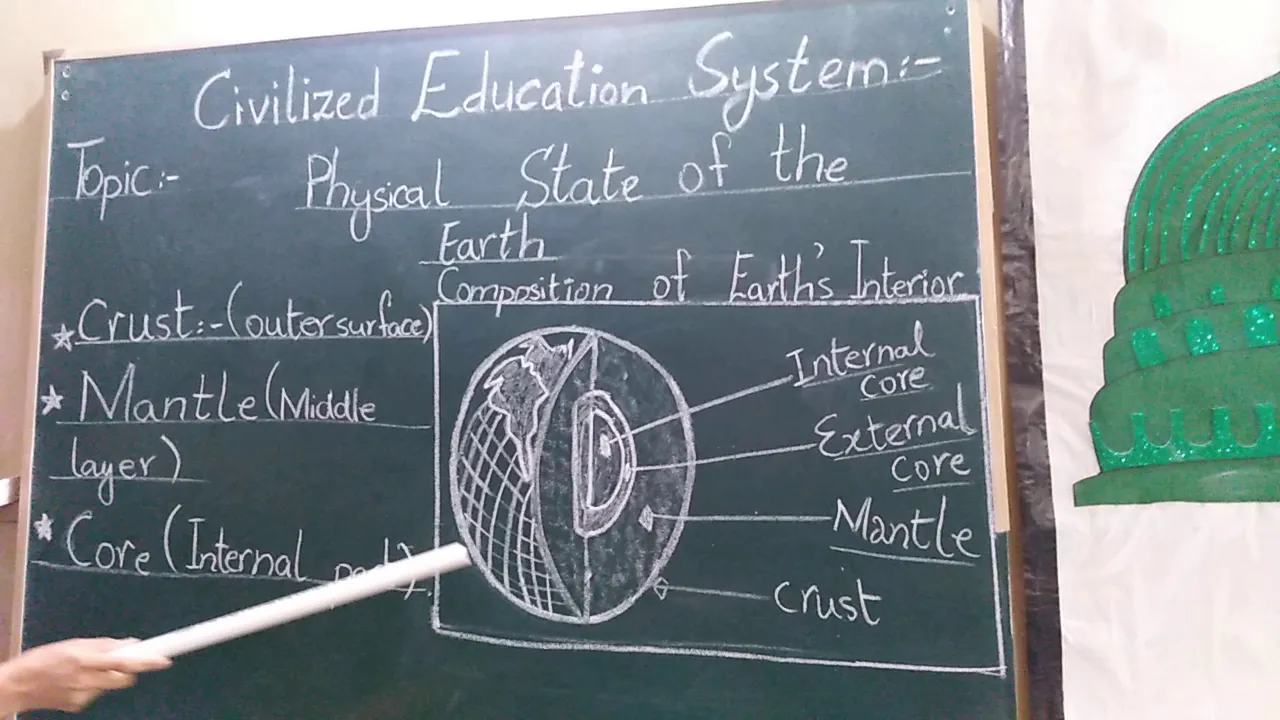 Civilized Education System:-
Topic:- Physical State of the
Earth
Composition of Earth's Interior
Crust:-(outer surface)
Mantle(Middle
layer)
Core(Internal
Internal
core
External
core
Mantle
crust